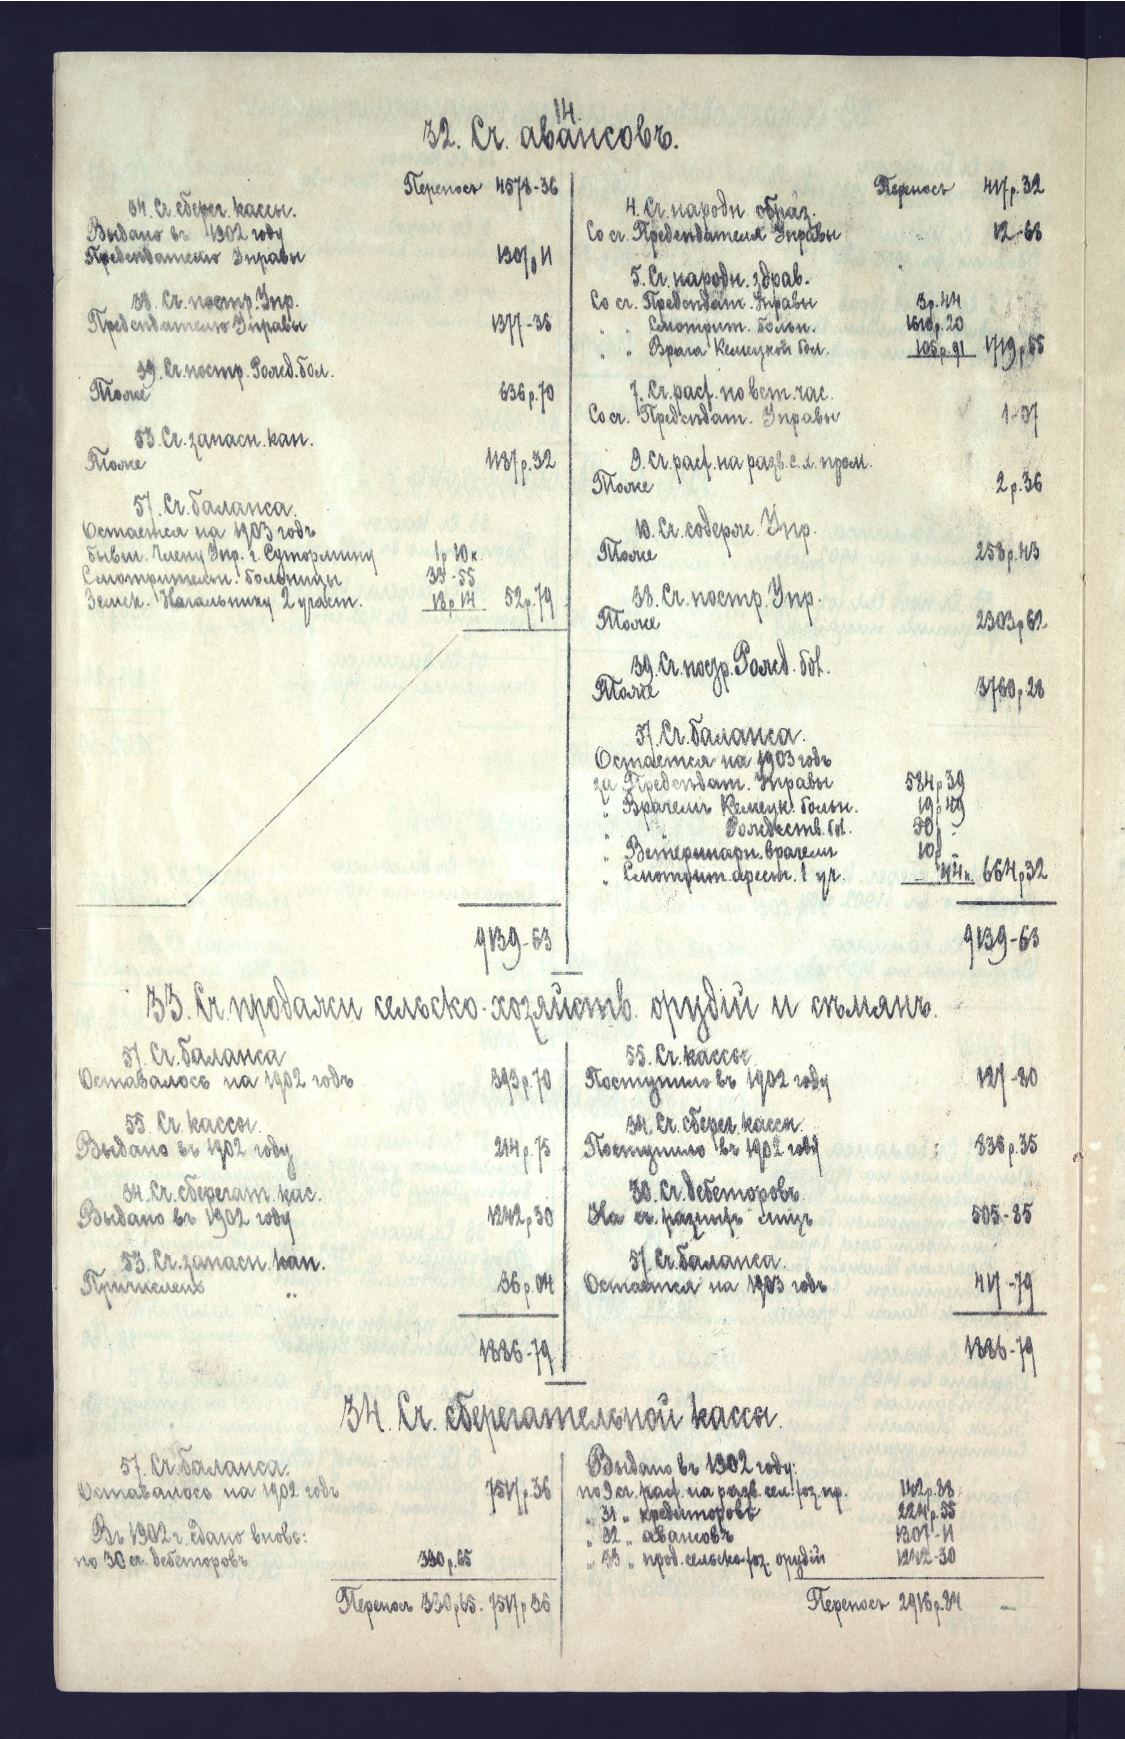 14.
32. Сч. авансовъ.
Переносъ 4578-36
34. Сч. сберег. кассы.
Выдано въ 1902 году
Предсѣдателю Управы 1307р11
38. Сч. постр. Упр.
Предсѣдателю Управы 1377-36
39. Сч. постр. Рожд. бол.
Тоже 636р.70
53. Сч. запасн. кап.
Тоже 1187р.32
57. Сч. баланса.
Остается на 1903 годъ
бывш. Члену Упр. г. Супормину 1-10к.
Смотрительн. больницы 33-55
Земск. Начальнику 2 участ. 18р14 52р.79
9139-63
Переносъ 417р.32
4. Сч. народн. образ.
Со сч. Предсѣдателя Управы 12-68
5. Сч. народн. здрав.
Со сч. Предсѣдат. Управы 3р.44
" " Смотрит. больн. 1610р.20
" " Врача Кемецкой бол. 105р.91 1719р55
7. Сч. расх. по вет. час.
Со сч. Предсѣдат. Управы 1-07
9. Сч. расх. на разв. с. х. пром.
Тоже 2р.36
10. Сч. содерж. Упр.
Тоже 258р.43
38. Сч. постр. Упр.
Тоже 2303р62
39. Сч. постр. Рожд. бол.
Тоже 3760р.28
57. Сч. баланса.
Остается на 1903 годъ
за Предсѣдат. Управы 584р39
" Врачемъ Кемецк. больн. 19р49
" " Рождеств. бол. 50р -
" Ветеринарн. врачемъ 10р -
" Смотрит. арест. 1 уч. 44к. 664р32
9139-63
33. Сч. продажи сельско-хозяйств. орудій и сѣмянъ.
57. Сч. баланса
Оставалось на 1902 годъ 393р.70
55. Сч. кассы.
Выдано въ 1902 году 214р.75
34. Сч. сберегат. кас.
Выдано въ 1902 году 1242р30
53. Сч. запасн. кап.
Причислен 36р.04
1886-79
55. Сч. кассы
Поступило въ 1902 году 127-80
34. Сч. сберег. кассы.
Поступило въ 1902 году 836р.35
30. Сч. дебеторовъ.
На сч. разныхъ лицъ 505-85
57. Сч. баланса
Остается на 1903 годъ 417-79
1886-79
34. Сч. сберегательной кассы.
57. Сч. баланса.
Оставалось на 1902 годъ 7517р.36
Въ 1902 г. сдано вновь:
по 30 сч. дебеторовъ 330р.65
Переносъ 330р65. 7517р36
Выдано въ 1902 году:
по 9 сч. расх. на разв. сел. хоз. пр. 142р.88
" 31 " кредиторовъ 224р.55
" 32 " авансовъ 1307-11
" 33 " прод. сельско-хоз. орудій 1242-30
Переносъ 2916р.84 —